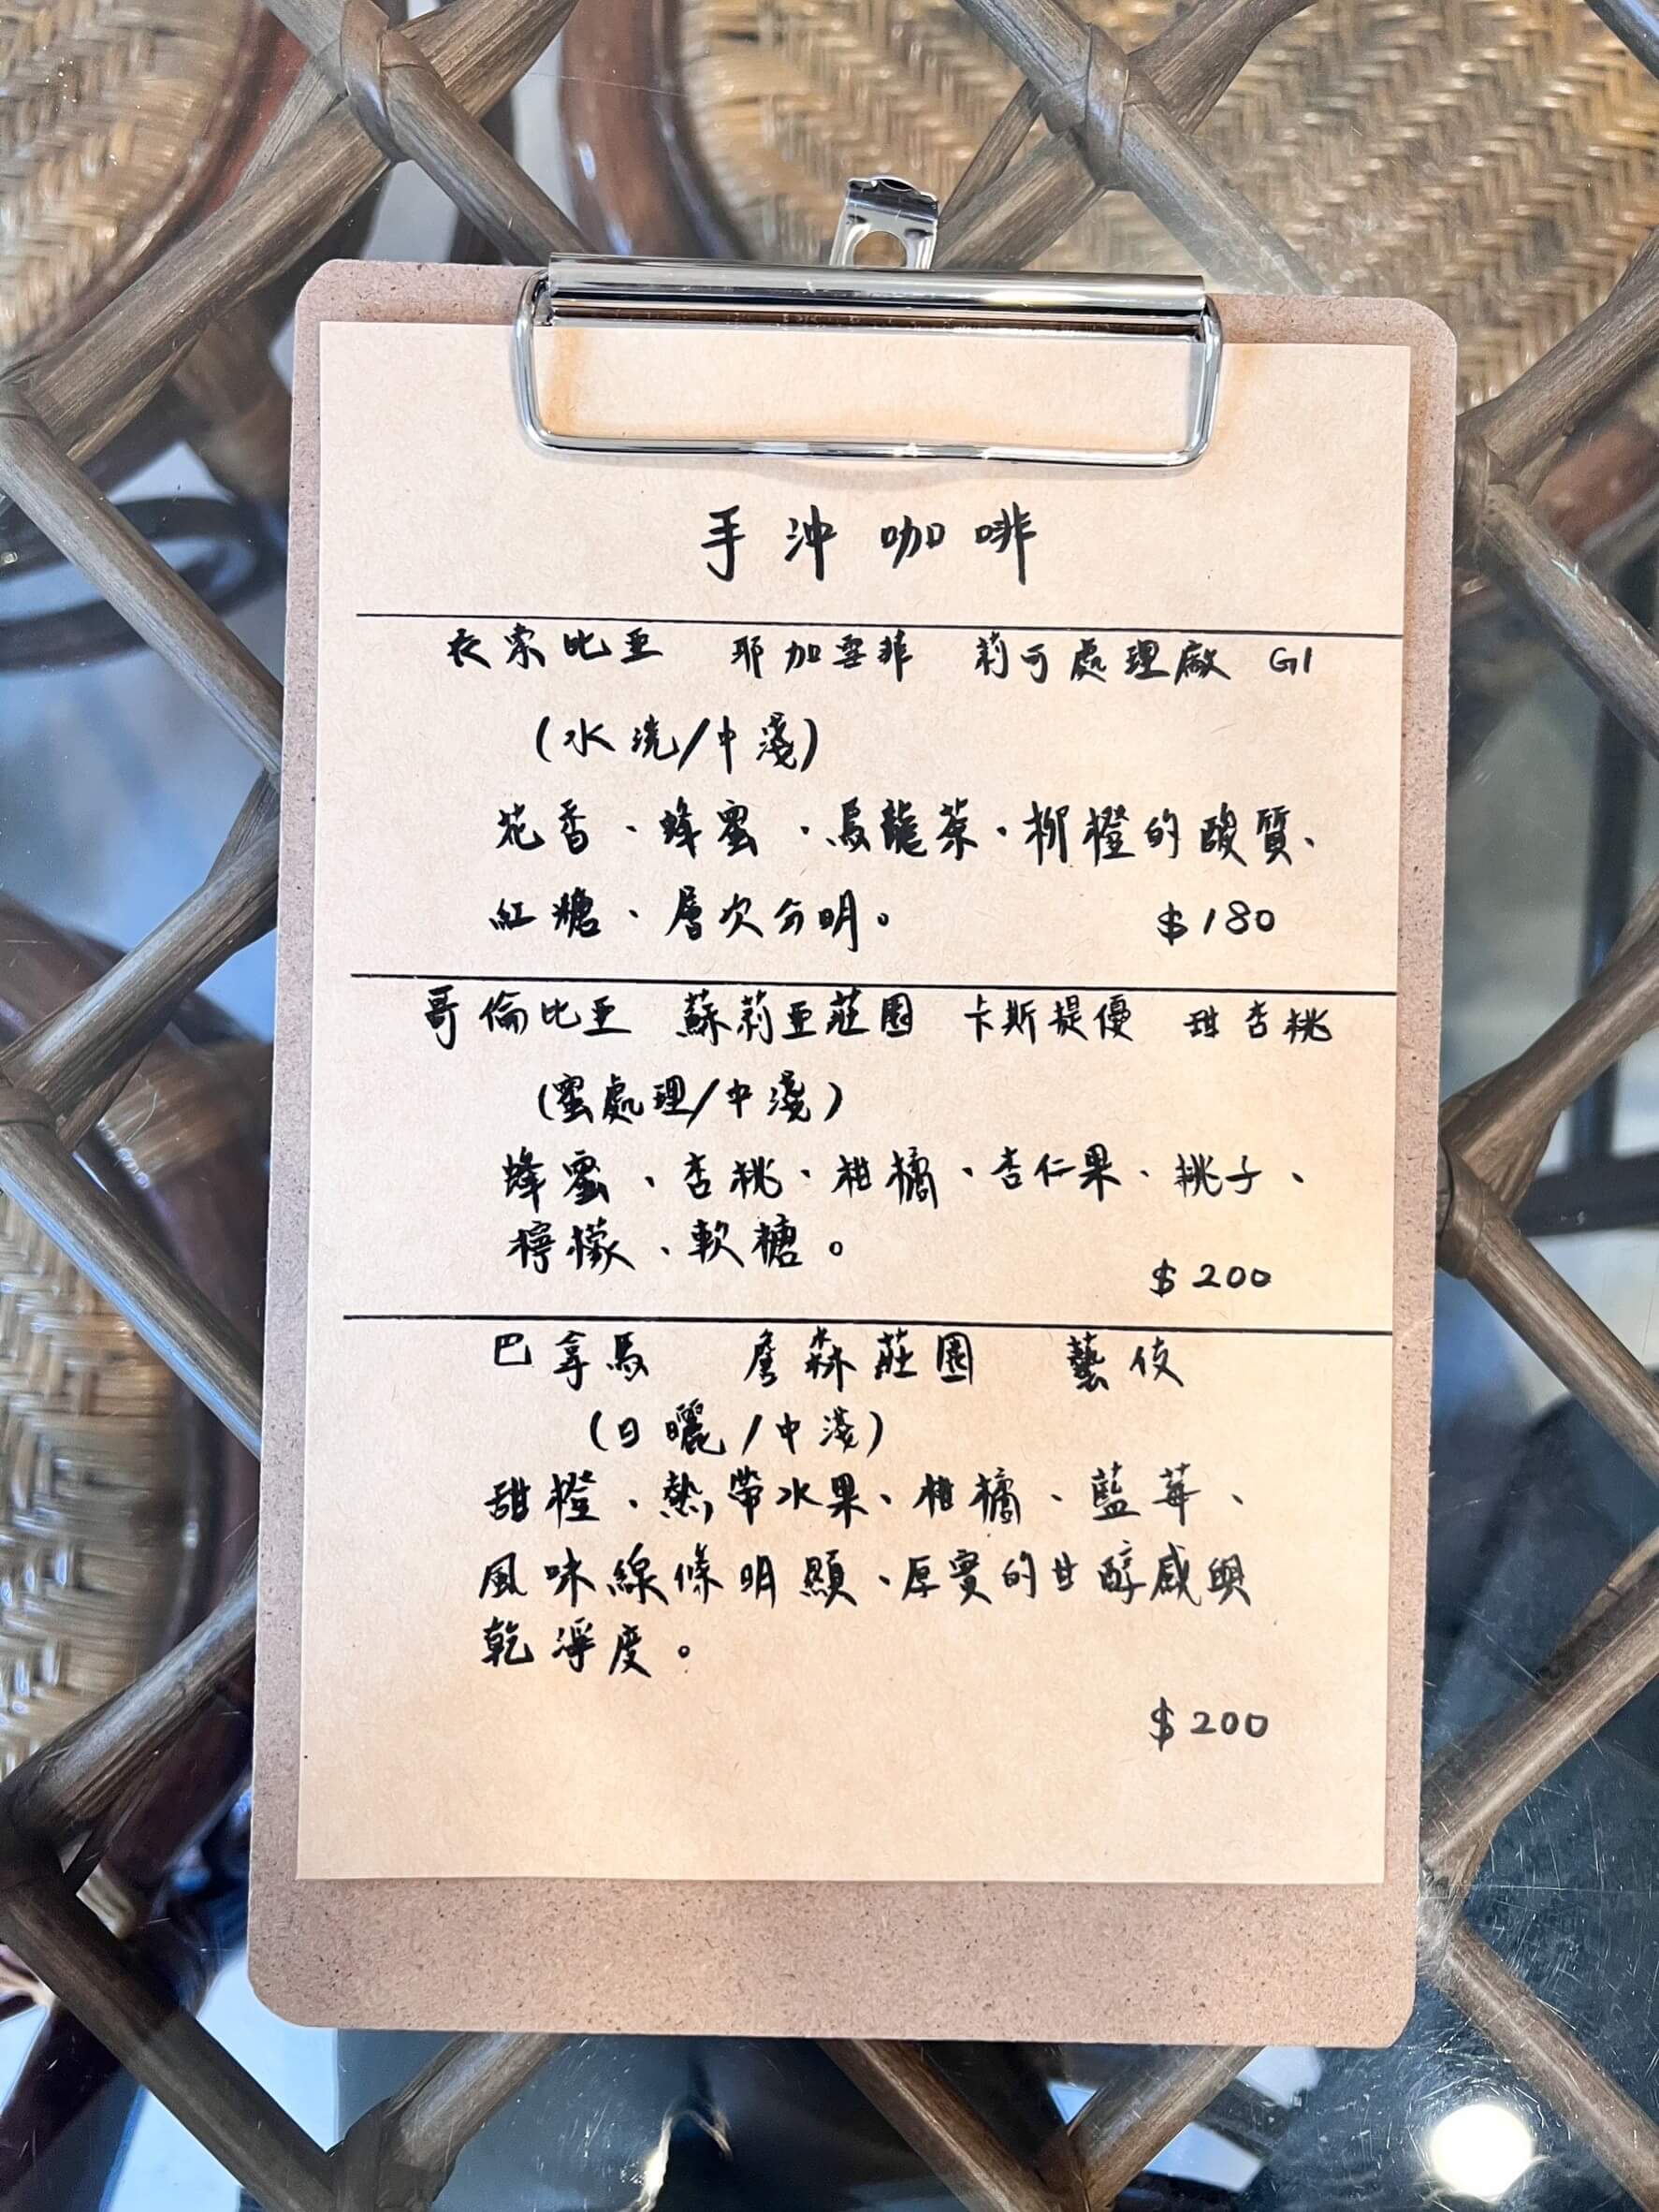 手沖咖啡
衣索比亞 耶加雪菲 莉可處理廠 G1
(水洗/中淺)
花香、蜂蜜、烏龍茶、柳橙的酸質、
紅糖、層次分明。 $180
哥倫比亞 蘇莉亞莊園 卡斯提優 甜杏桃
(蜜處理/中淺)
蜂蜜、杏桃、柑橘、杏仁果、桃子、
檸檬、軟糖。
$200
巴拿馬 詹森莊園 藝伎
(日曬/中淺)
甜橙、熱帶水果、柑橘、藍莓、
風味線條明顯、厚實的甘醇感與
乾淨度。
$200